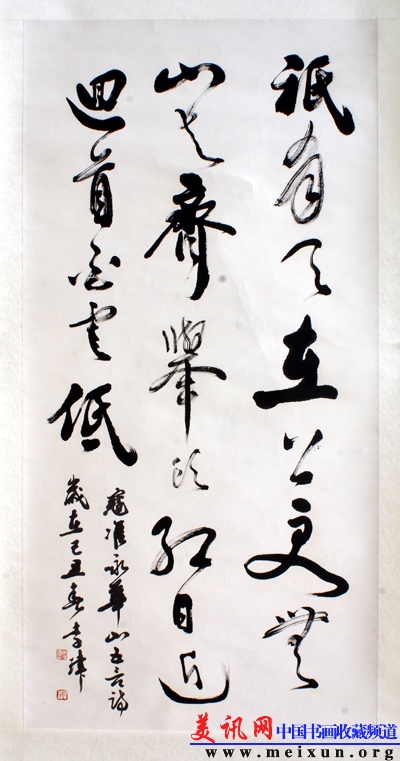 祇有天在上更無
山与齊舉頭紅日近
迴首白雲低
寇准咏華山五言詩
歲在己丑春李
美讯网 中国书画收藏频道
www.meixun.org